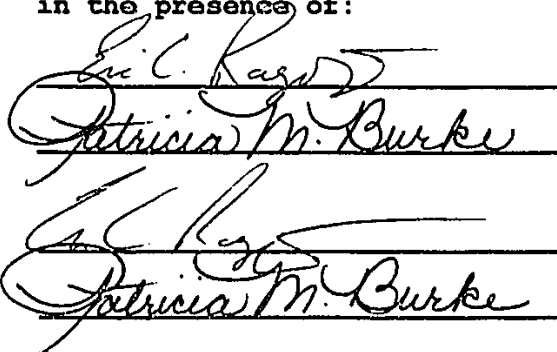 in the presence of:
Eric C.
Patricia M. Burke
C.
Patricia M. Burke